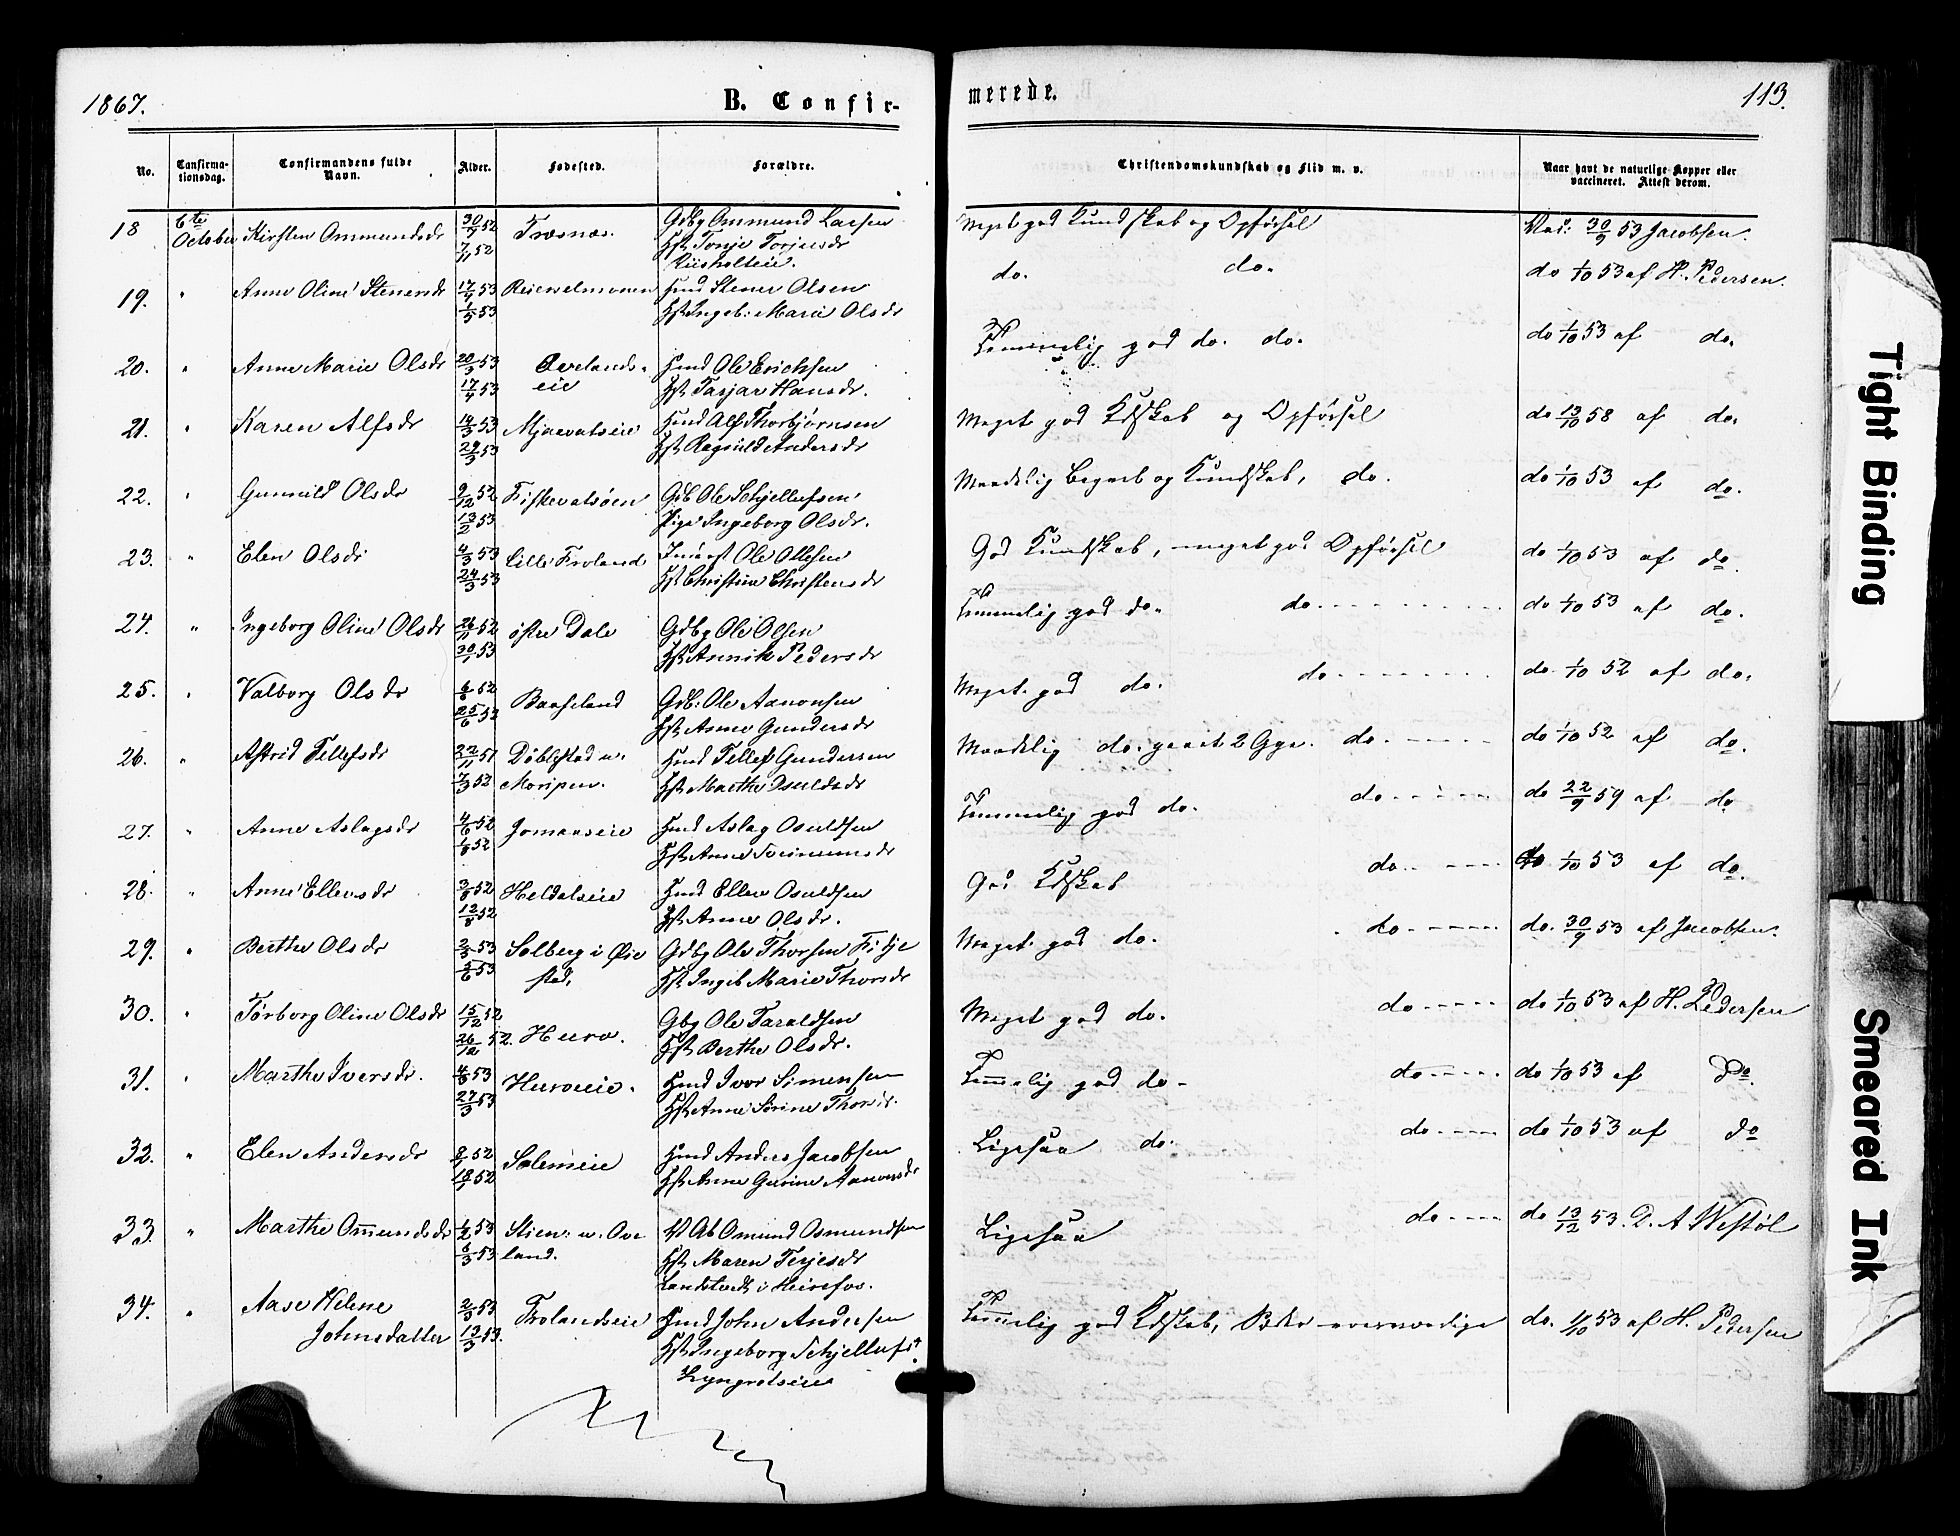 1867.
B. Confir-
merede.
113.
No.
Confirma-
tionsdag.
Confirmandens fulde
Navn.
Alder.
Fødested.
Forældre.
Christendomskundskab og Flid m. v.
Naar havt de naturlige Kopper eller
vaccineret. Attest derom.
18 6te October Kirsten Ommundsdr 30/9 52 7/11 52 Træsnæs. Gdbg Ommund Larsen
Kst Tonje Torjusdr
Riisholteie.
Meget god Kundskab og Opførsel
Vac: 30/9 53 Jacobsen.
19. " Anne Oline Stenersdr 17/4 53 1/5 53 Husmd Stener Olsen
Kst Ingeb: Marie Olsdr
do. do.
do 1/10 53 af H. Pedersen.
20. " Anne Marie Olsdr 20/3 53 17/4 53 Overlands-
eie
Husmd Ole Erichsen
Kst Tarjar Hansdr.
Temmelig god do. do.
do 1/10 53 af do.
21. " Karen Alfsdr 14/3 53 29/3 53 Mjaavatseie Husmd Alf Thorbjørnsen
Kst Ragnild Andersdr
Meget god Kdskab og Opførsel
do 13/10 58 af do.
22. " Gunnild Olsdr 9/12 52 13/2 53 Fiskevatsøen Gdb Ole Schjellufsen
Pige Ingeborg Olsdr.
Maadelig Begreb og Kundskab, do.
do 1/10 53 af do.
23. " Elen Olsdr 4/3 53 24/3 53 Lille Froland Inderst Ole Ollesen
Kst Christine Christensdr
God Kundskab, meget god Opførsel
do 1/10 53 af do.
24. " Ingeborg Oline Olsdr 26/11 52 30/1 53 østre Dale Gdbg Ole Olsen
Kst Annik Pedersdr
Temmelig god do. do.
do 1/10 53 af do.
25. " Valborg Olsdr 6/6 52 25/6 52 Baaseland Gdb: Ole Aanonsen
Kst Anne Gundersdr
Meget god do. do
do. 1/10 52 af do.
26. " Astrid Tellefsdr 22/11 51 7/3 52 Døblestad u.
Moripen.
Husmd Tellef Gundersen
Kst Marthe Osuldsdr
Maadelig do. gaaet 2 Gge. do.
do 1/10 52 af do.
27. " Anne Aslagsdr 4/6 52 1/8 52 Jomaaseie Husmd Aslag Osuldsen
Kst Anne
Temmelig god do. do
do 22/9 59 af do
28. " Anne Ellevsdr 3/8 52 12/8 52 Heldalseie Husmd Ellev Osuldsen
Kst Anne Olsdr.
God Kdskab do.
do 1/10 53 af do.
29. " Berthe Olsdr 2/5 53 5/6 53 Solberg i Øie
stad.
Gdbg Ole Thorsen Fitje
Kst Ingeb Marie Thorsdr
Meget god do. do
do. 30/9 53 af Jacobsen.
30. " Tørborg Oline Olsdr 15/12 52 26/12 52. Hurv. Gbg Ole Taraldsen
Kst Berthe Olsdr.
Meget god do. do
do 1/10 53 af H. Pedersen
31. " Marthe Iversdr. 4/3 53 27/3 53 Hurveie. Husmd Iver Simensen
Kst Anne Serine Thorsdr.
Temmelig god do - do
do 1/10 53 af Do.
32. " Elen Andersdr 52 52 Solemeie Husmd Anders Jacobsen
Kst Anne Gurine Aanonsdr
Ligesaa do. do
do 1/10 53 af do
33. " Marthe Ommundsdr 6/2 53 6/3 53 Stien: u. Ove
land.
Omund Osmundsen
Kst Maren Terjesdr
Landstedt i Heirefos.
Ligesaa do
do 13/12 53. D. A Westøl
34. " Aase Helene
Johnsdatter
2/3 53 13/3 53. Frolandseie Husmd John Andersen
Kst Ingeborg Schjellufsdr
Lyngrotseie
Temmelig god Kdskab,
do. 1/10 53 af H. Pedersen
Tight Binding
Smeared Ink